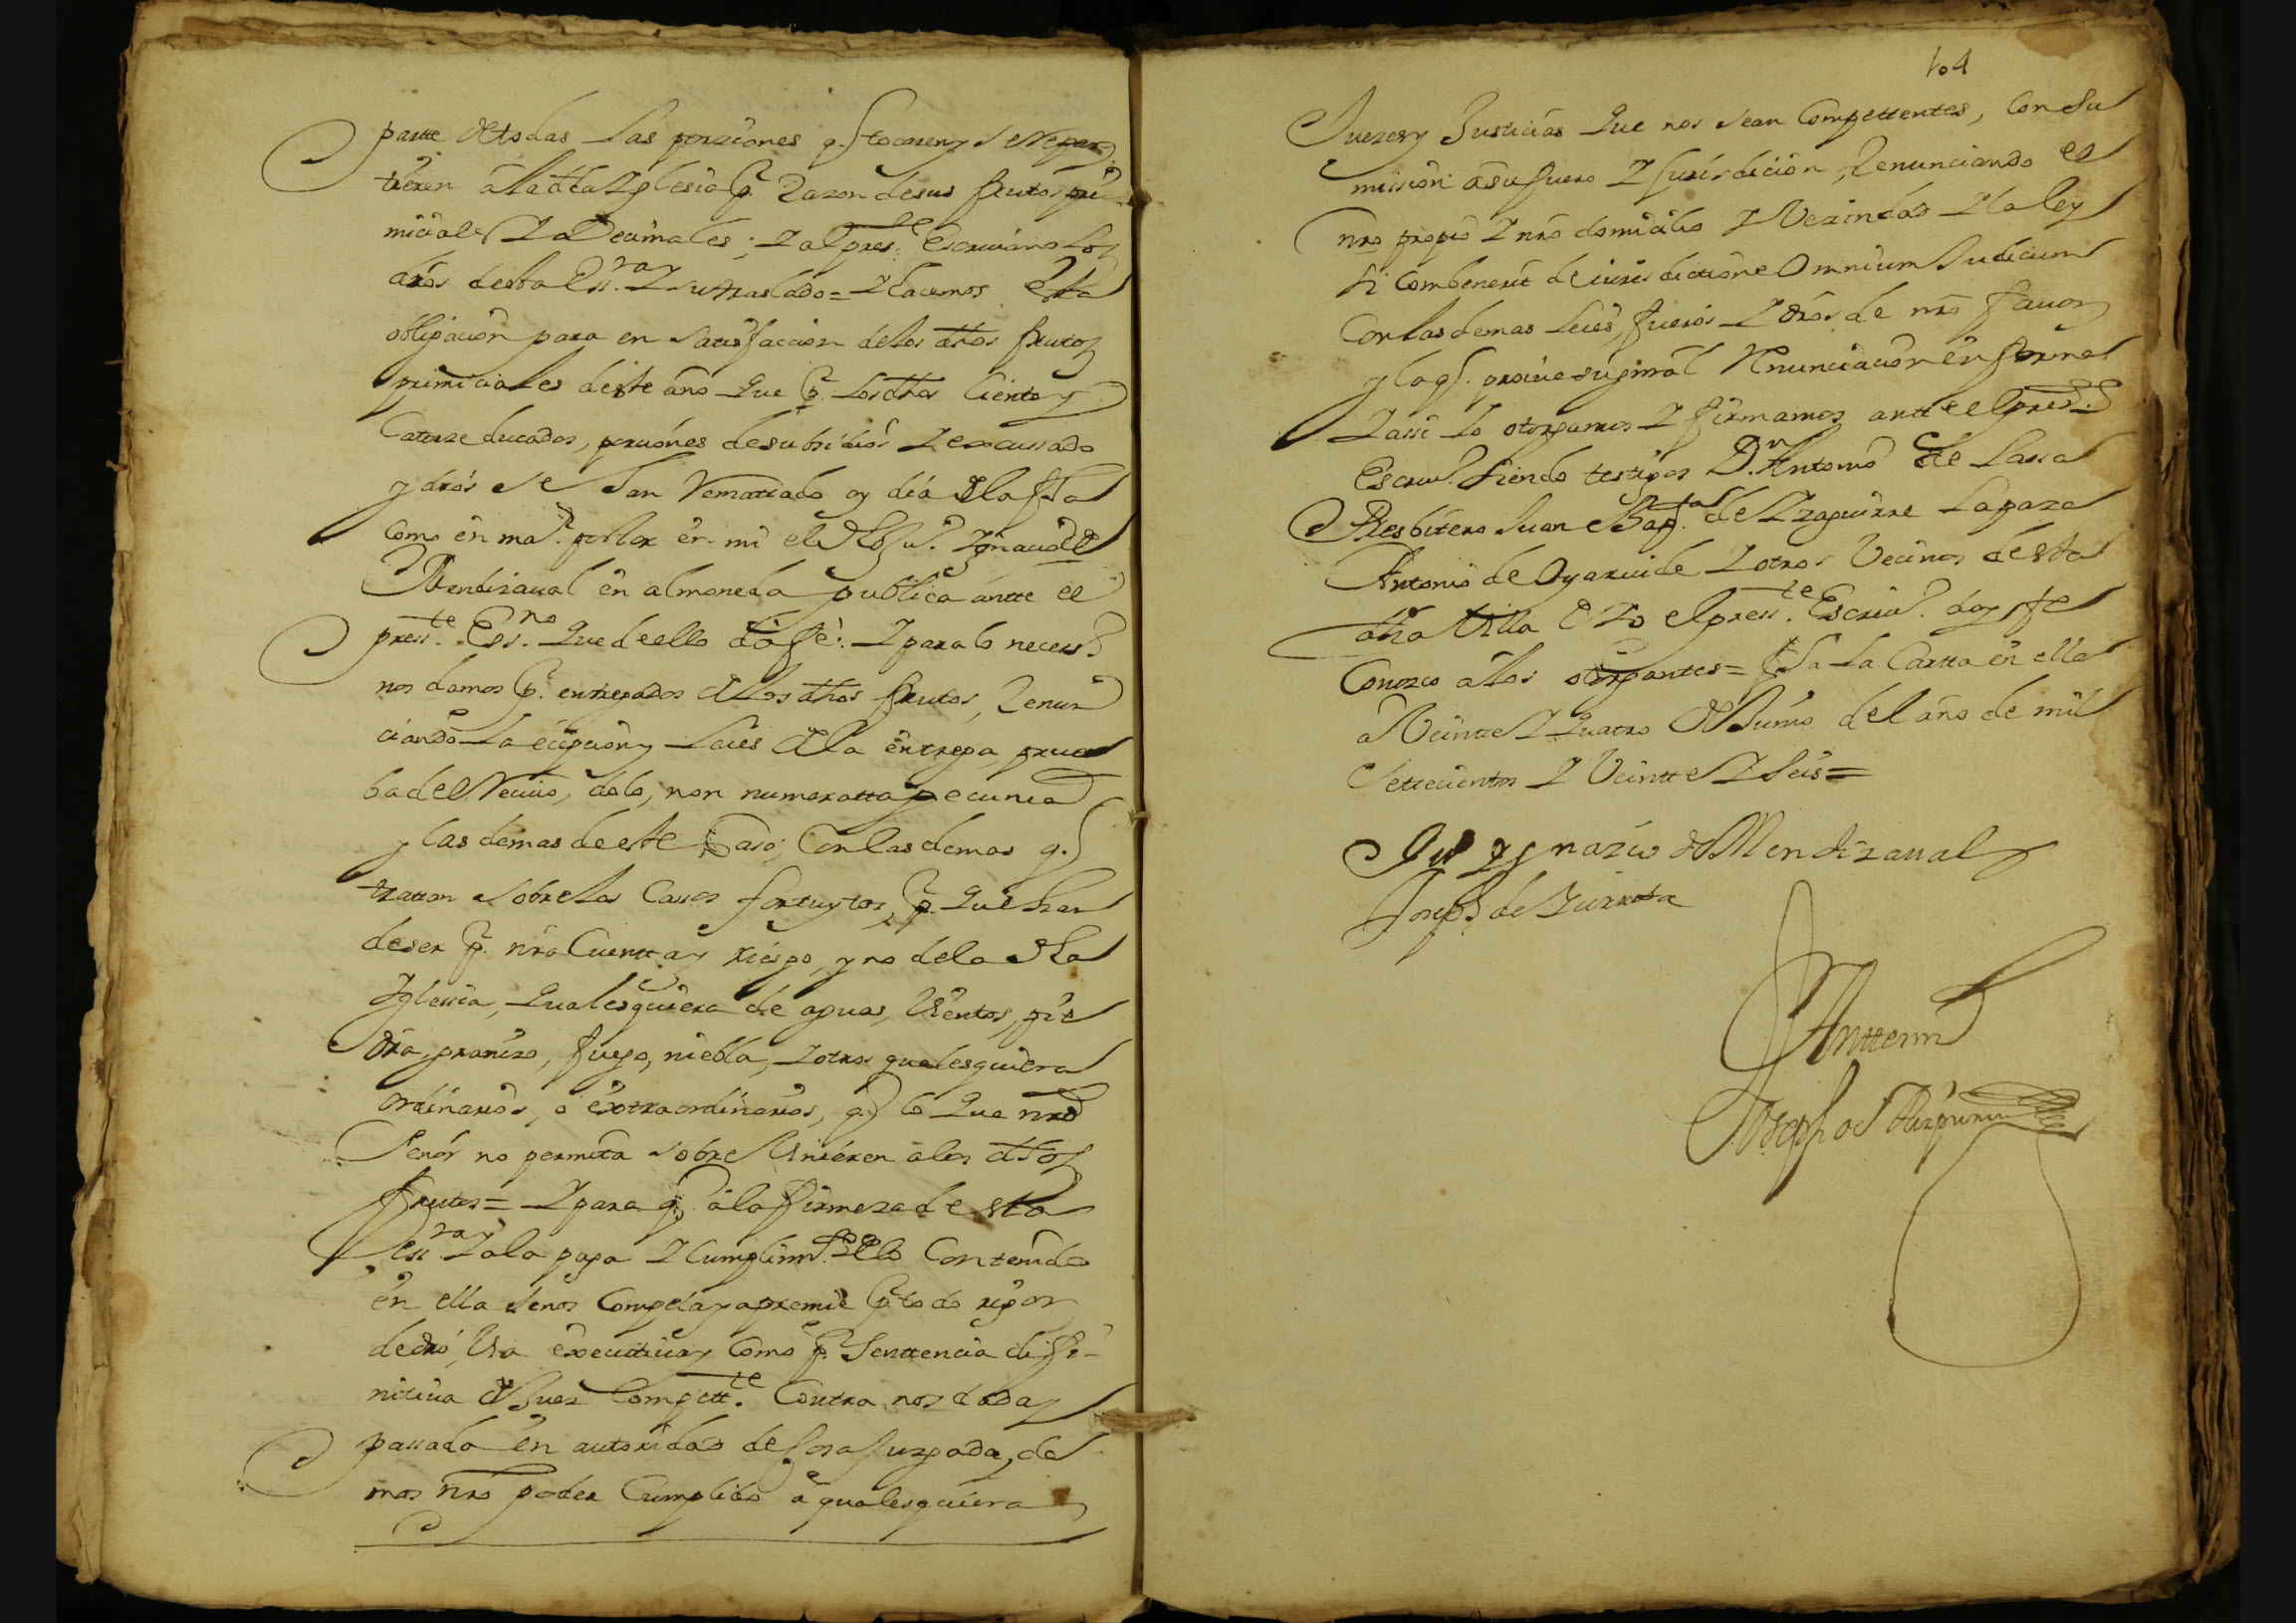 parte de todas las porziones q.e tocaren y se repar-
tieren a la dha Iglesia p.r razon de sus frutos pri-
miciales y a Decimales; y al pres.te Escrivano los
dros desta Ess.ra y su traslado = y hacemos esta
obligacion para en satisfaccion de los dhos frutos
primiciales deste año que p.r los dhos Ciento y
Catorze ducados, porziones de subsidios y excussado
y dros se han rematado oy dia de la fha
como en ma.r postor en mi el dho Ju.o Ygnacio de
Mendizaval en almoneda publica antte el
press.te Ess.no que de ello da fe: y para lo necess.o
nos damos p.r entregados de los dhos frutos, renun
ciando la ecepcion y leies de la entrega, prue
ba del recivo, dolo, non numeratta pecunia
y las demas de este Caso; Con las demas q.e
trattan sobre los Cassos fortuytos, p.r que han
de ser p.r nra Cuentta y riesgo, y no de la dha
Iglessia, qualesquiera de aguas, Vientos, pie
dra, granizo, fuego, niebla, y otros qualesquiera
ordinarios, o extraordinarios, q.e lo que nro
Señor no permita sobre Vinieren a los dhos
frutos = Y para q.e a la firmeza de esta
ess.ra y a la paga y Cumplim.to de lo Contenido
en ella se nos Compela y apremie p.r todo rigor
de dro, Via executiva y Como p.r Senttencia difi-
nitiva de Juez Compett.te Contra nos dada y
passada en autoridad de Cosa Juzgada, da
mos nro poder Cumplido a qualesquiera
104
Juezes y Justicias que nos sean Compettentes, Con su
mission a su fuero y Jurisdicion, renunciando el
nro propio y nro domicilio y Vezindad y la ley
si Combenerit de iurisdictione Omnium Judicum
Con las demas leies, fueros y dros de nro favor
y la q.e proive la general renunciacion en forma
y assi lo otorgamos y firmamos antte el pres.te
Escriv.o siendo testigos D.n Antonio de Lassa
Presbitero Juan Bap.ta de Yzaguirre Lapaza
Antonio de Oyarvide y otros Vecinos de esta
dha Villa e Yo el press.te Escriv.o doy fe
Conozco a los otorgantes = fha la Cartta en ella
a Veintte y quatro de Junio del año de mil
settecientos y Veintte y seis =
Ju.o Ygnazio de Mendizaval
Joseph de Zurrota
Anttemi
Joseph de